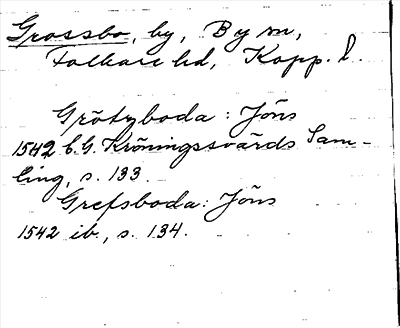 Grossbo, by, By sn,
Folkare hd, Kopp. l.
Grötyboda: Jöns
1542 C.G. Kröningssvärds Sam-
ling, s. 133.
Grefsboda: Jöns
1542 ib., s. 134.